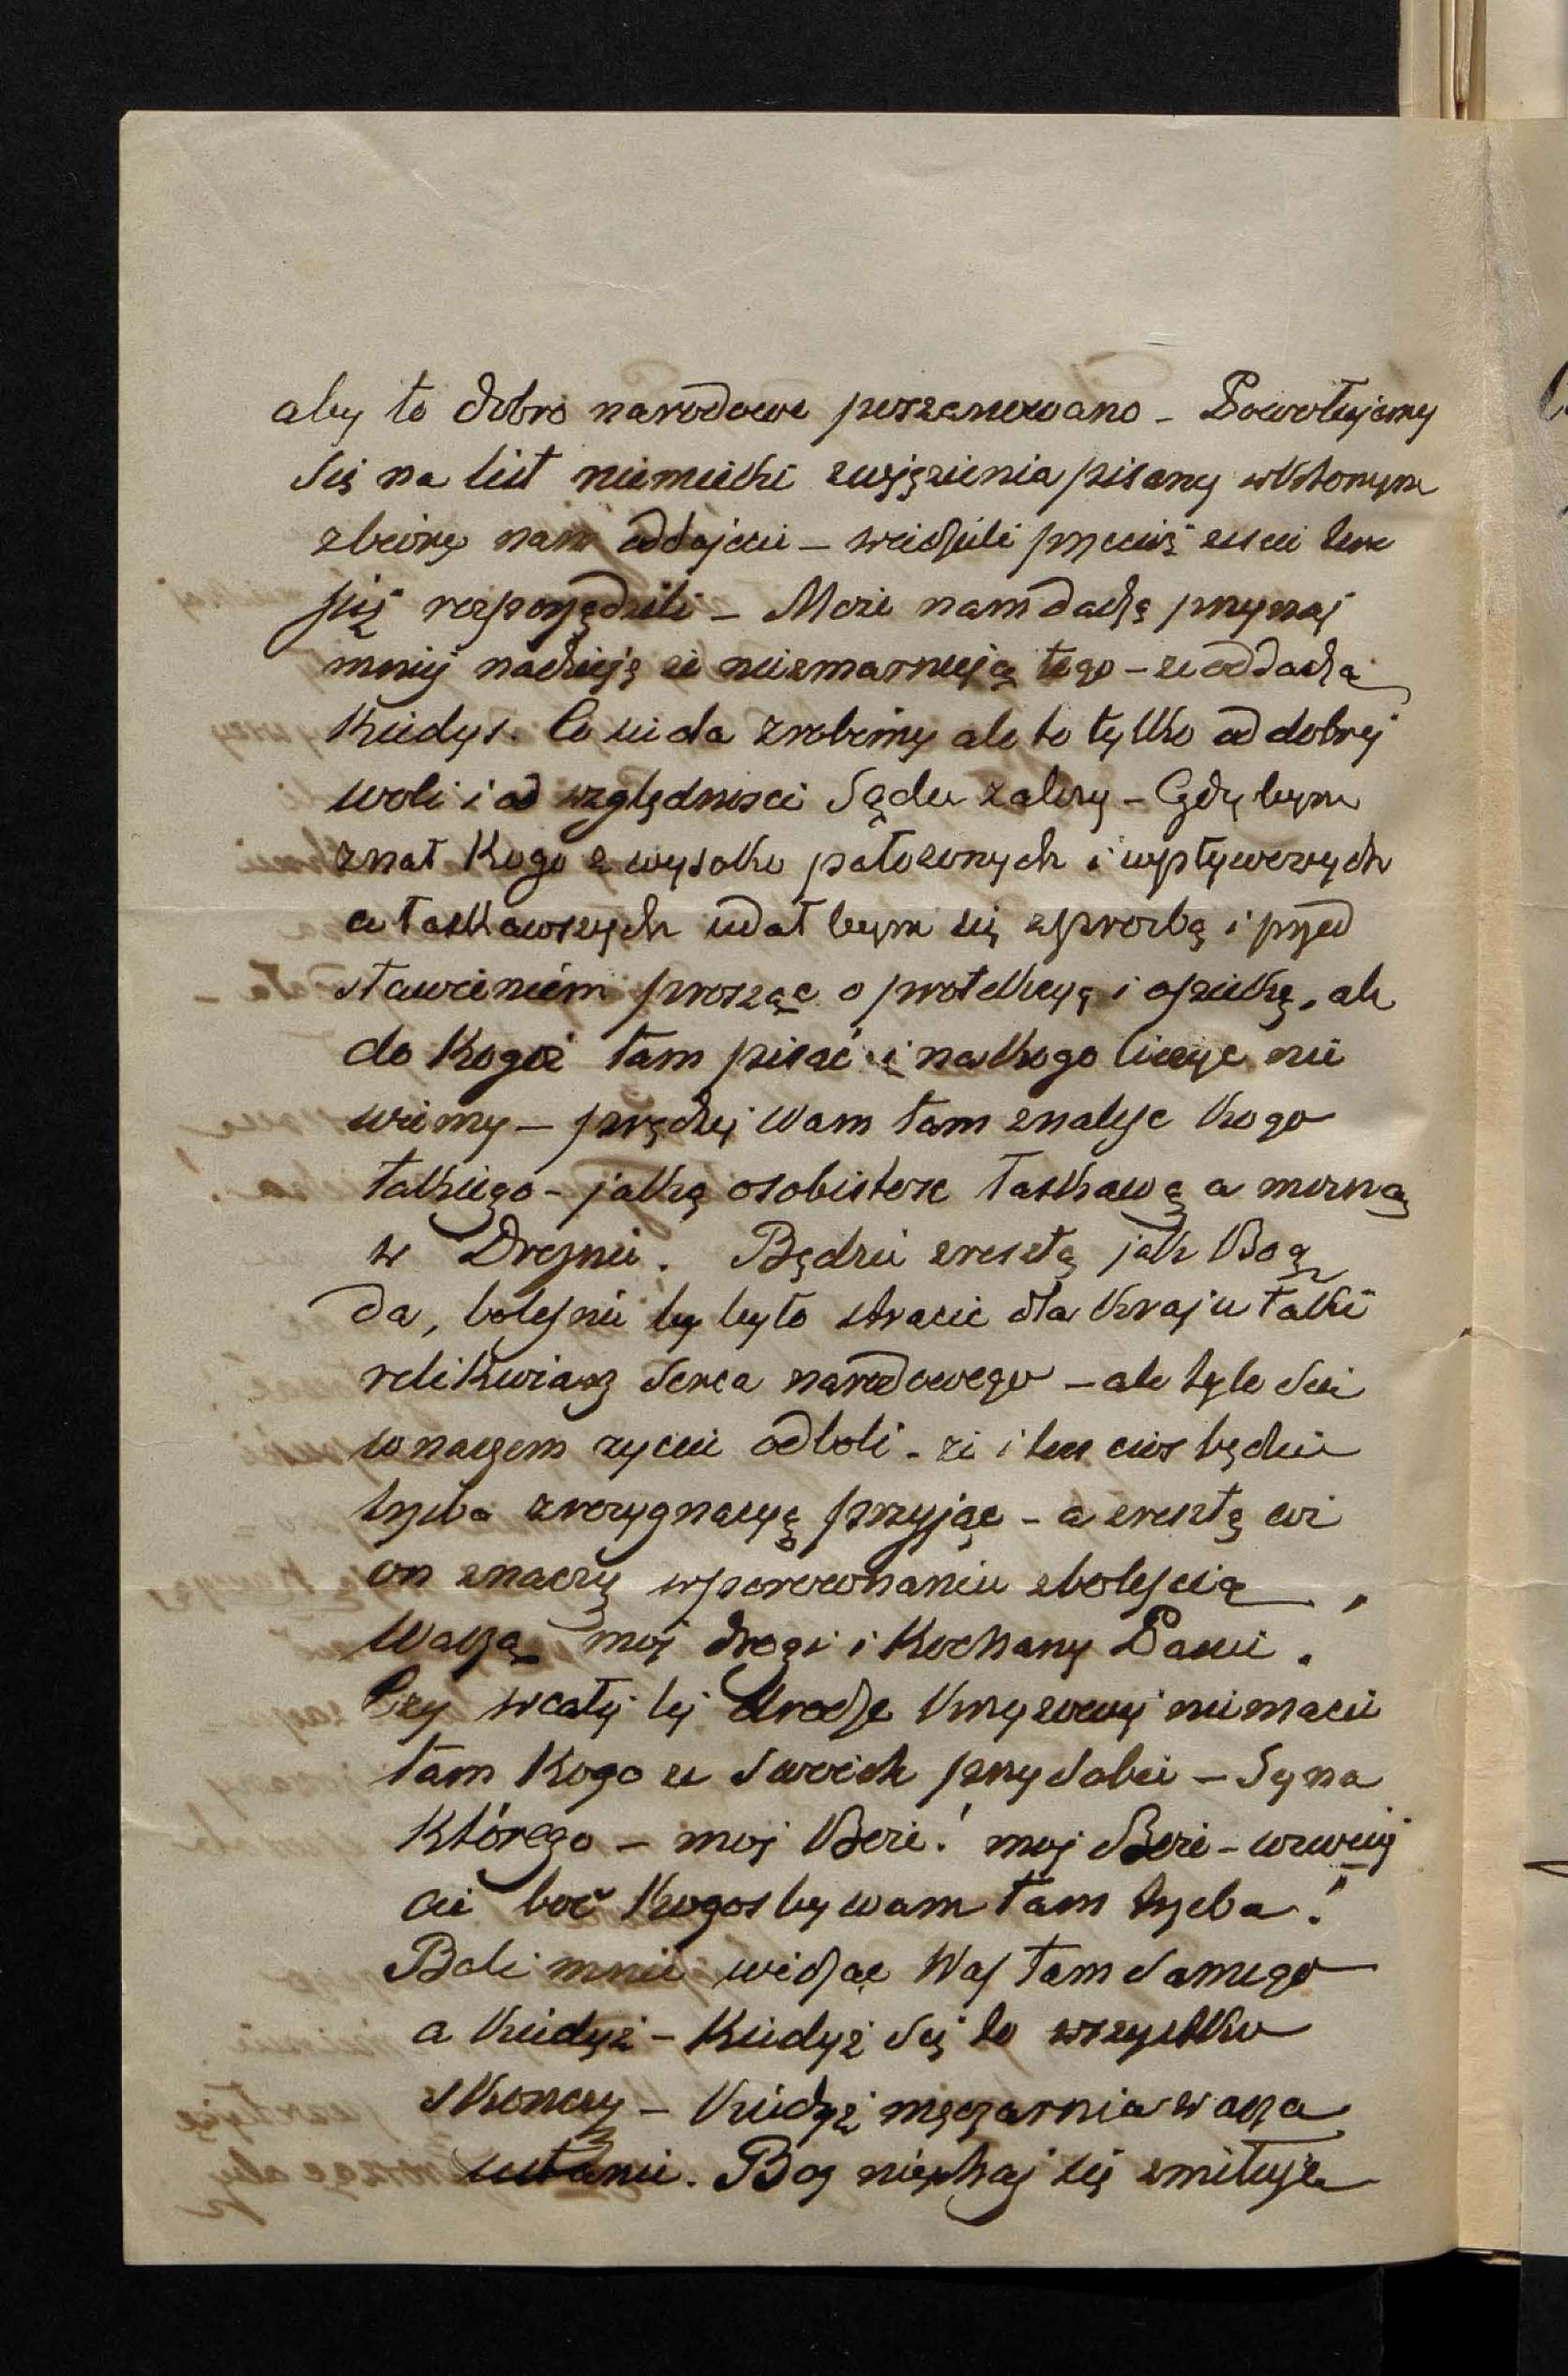 aby to dobro narodowe poszanowano – Powołujemy
się na list niemiecki z więzienia pisany w którym
zbiory nam oddajecie – widzieli przecież żeście tem
już rozporządzili – Może nam dadzą przynaj
mniej nadzieję że nie zmarnują tego – że oddadzą
kiedyś. Co się da zrobimy ale to tylko od dobrej
woli i od względności Sądu zależy – Gdybym
znał kogo z wysoko położonych i wpływowych
a łaskawszych udał bym się z prośbą i przed
stawieniem prosząc o protekcyą i opiekę, ale
do kogóż tam pisać i na kogo liczyć nie
wiemy – prędzej Wam tam znaleść kogo
takiego – jaką osobistość łaskawą a możną
w Dreznie. Będzie zresztą jak Bóg
da, boleśnie by było stracić dla kraju takie
relikwiarz serca narodowego – ale tyle się
w naszem życiu odboli – że i ten cios będzie
trzeba z rezygnacyą przyjąć – a zresztą cóż
on znaczy w porównaniu z boleścią
Waszą mój drogi i kochany Panie.
Czy w całej tej drodze krzyżowej nie macie
tam kogo ze swoich przy sobie – Syna
którego – mój Boże! mój Boże – wezwij
cie boć kogoś by wam tam trzeba!
Boli mnie widząc Was tam samego
a kiedyż – kiedyż się to wszystko
skończy – kiedyż męczarnia wasza
ustanie. Bóg niechaj się zmiłuje